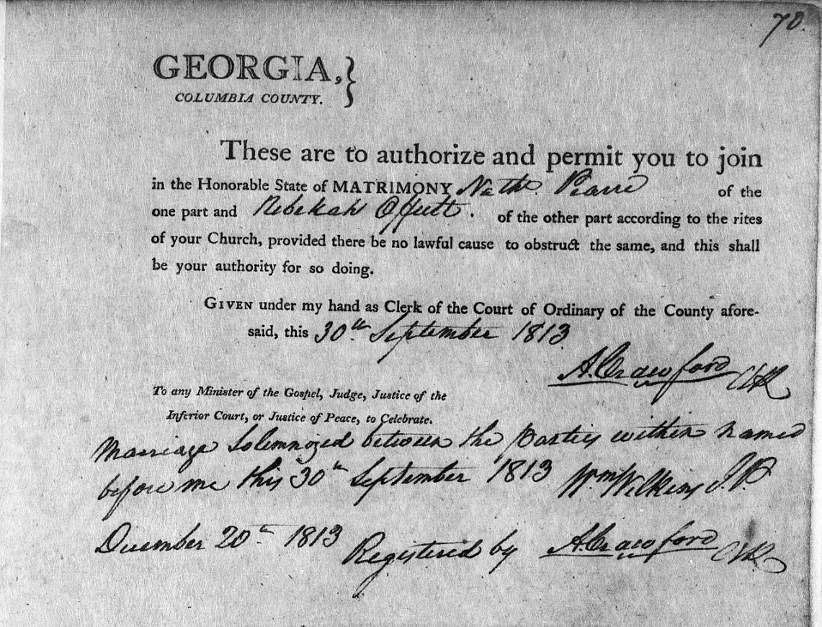 70.
GEORGIA,
COLUMBIA COUNTY.
These are to authorize and permit you to join
in the Honorable State of MATRIMONY Nathl. Pearre of the
one part and Rebekah Offutt. of the other part according to the rites
of your Church, provided there be no lawful cause to obstruct the same, and this shall
be your authority for so doing.
GIVEN under my hand as Clerk of the Court of Ordinary of the County afore-
said, this 30th September 1813
A. Crawford
To any Minister of the Gospel, Judge, Justice of the
Inferior Court, or Justice of Peace, to Celebrate.
Marriage Solemnozed between the Parties within named
before me this 30th September 1813 Wm Wilkins J.P.
December 20th 1813 Registered by A. Crawford